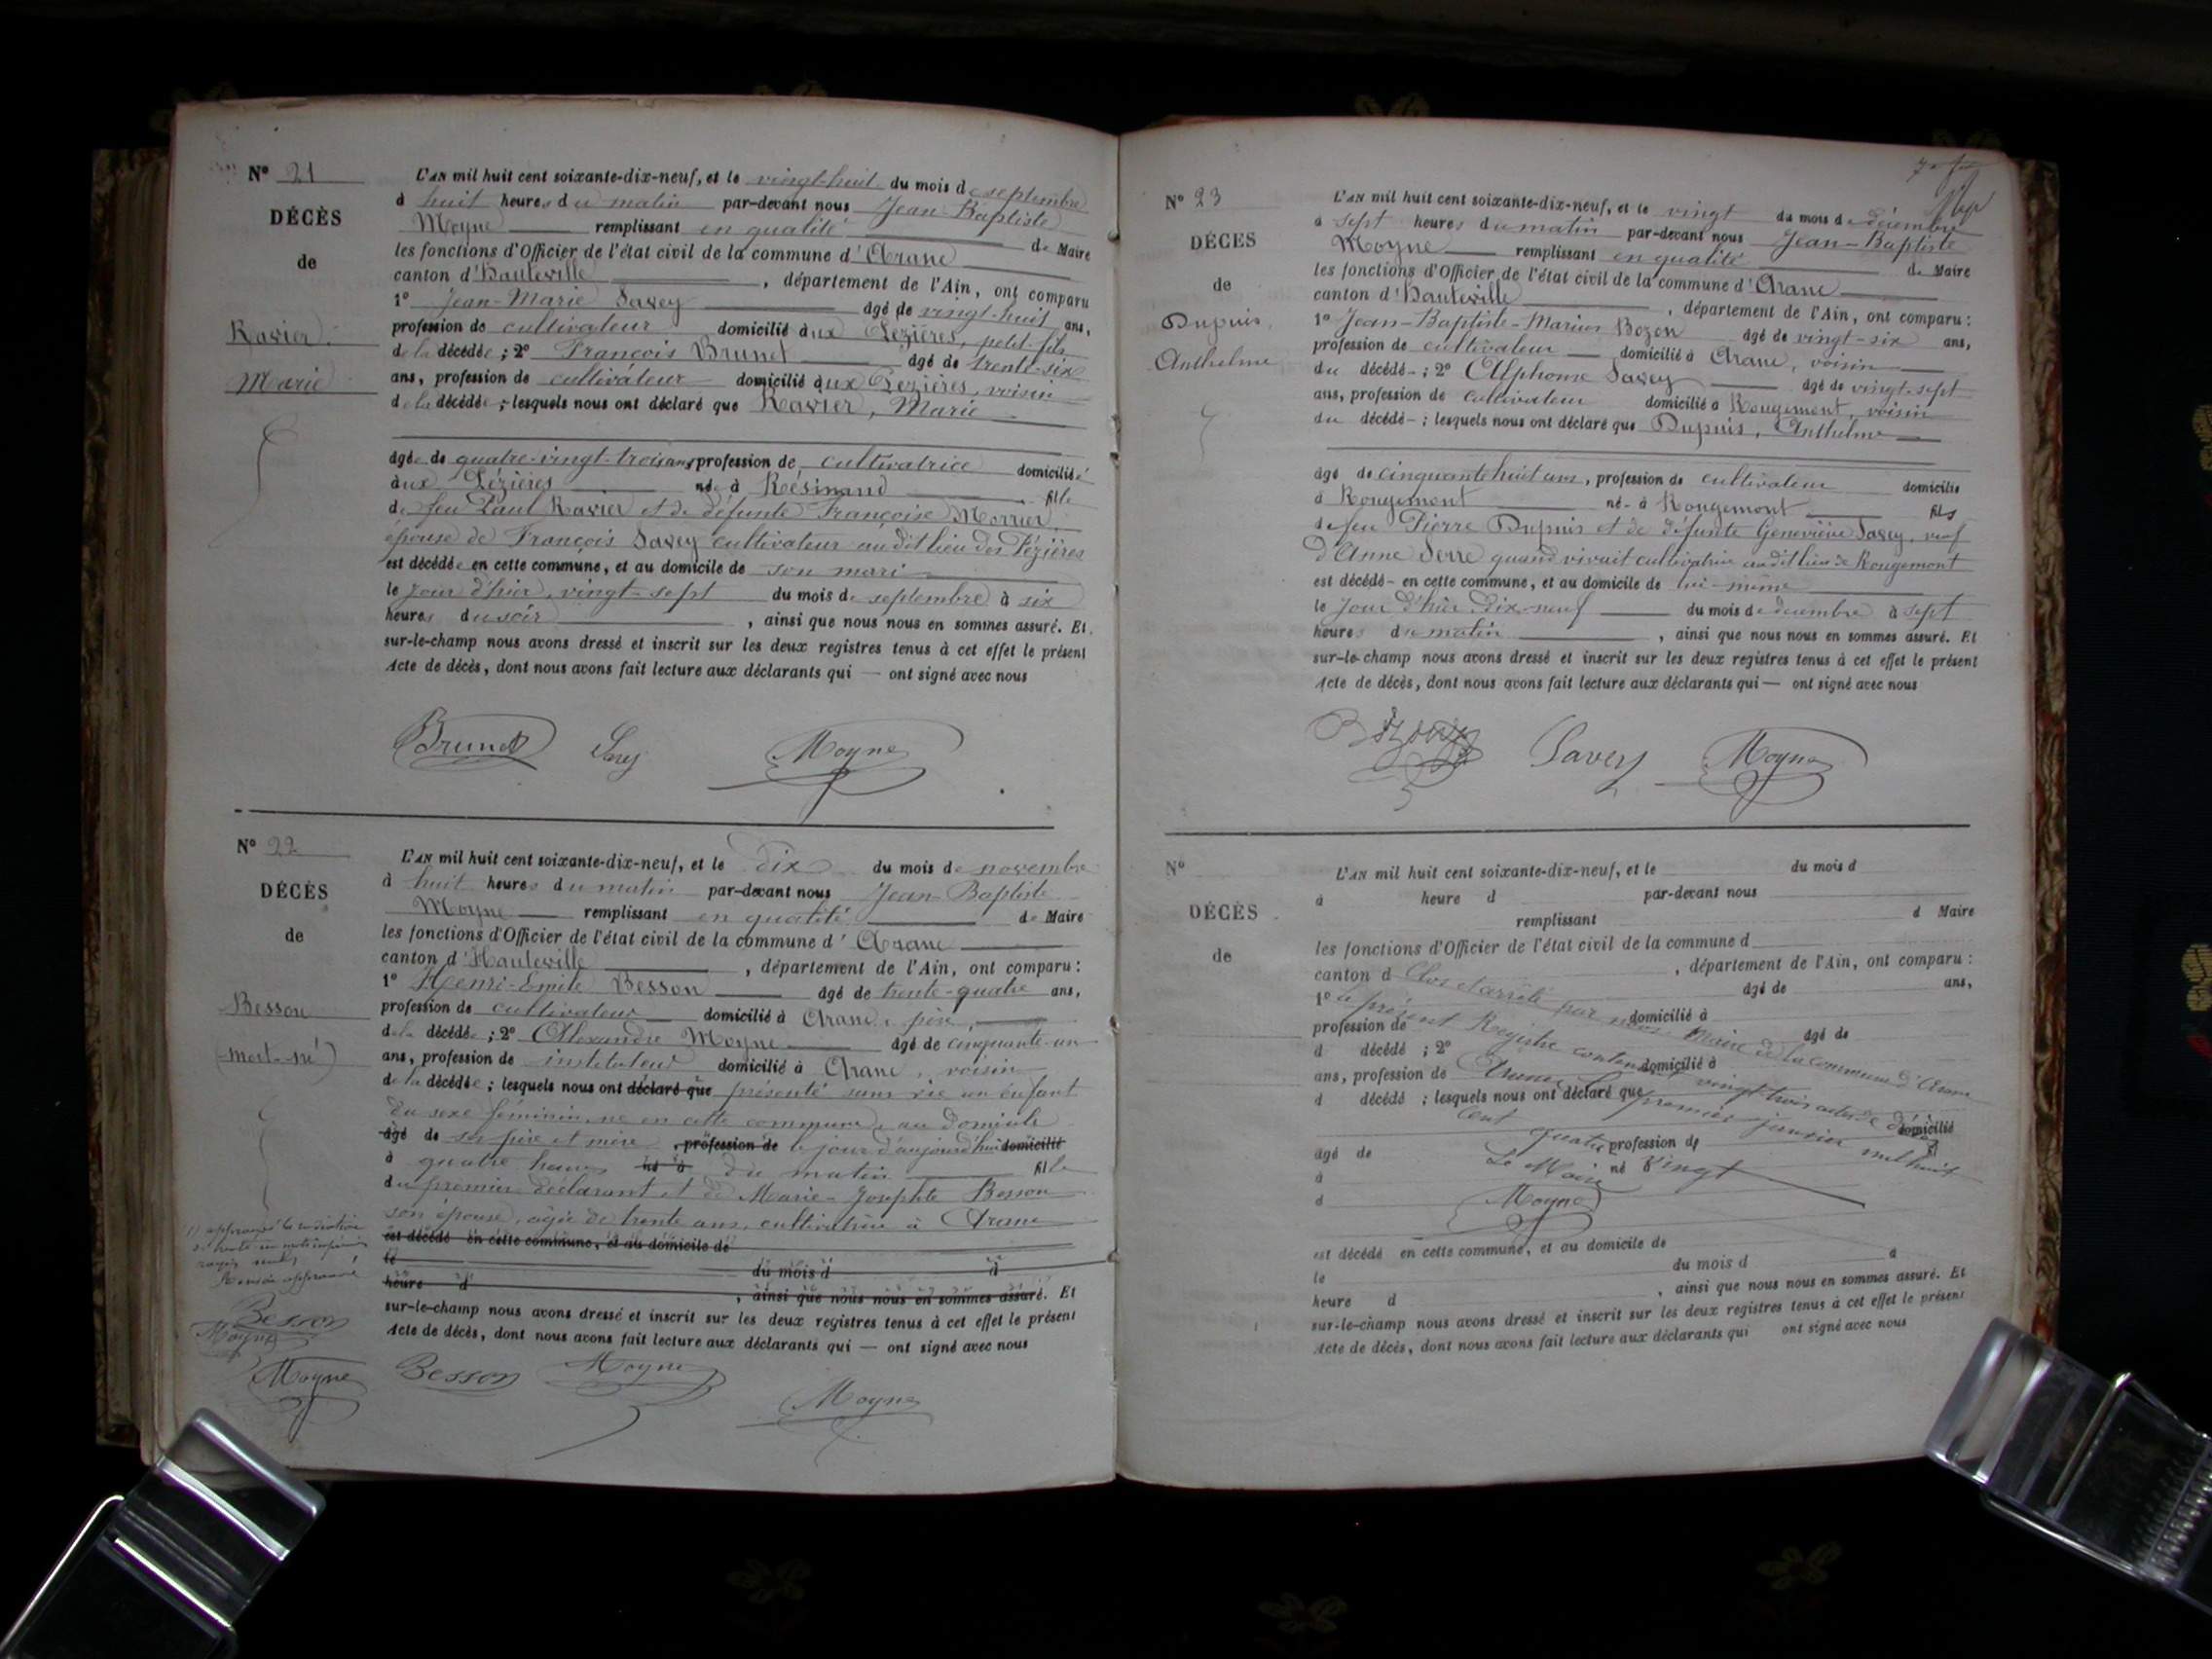 N° 21
DÉCÈS
de
Ravier
Marie
L'AN mil huit cent soixante-dix-neuf, et le vingt-huit du mois de septembre
à huit heures du matin par-devant nous Jean-Baptiste
Moyne remplissant en qualité de Maire
les fonctions d'Officier de l'état civil de la commune d'Arane
canton d'Hauteville, département de l'Ain, ont comparu
1° Jean-Marie Savey âgé de vingt-huit ans,
profession de cultivateur domicilié aux Lézières, petit-fils
de la décédée ; 2° François Brunet âgé de trente-six
ans, profession de cultivateur domicilié aux Lézières, voisin
de la décédée ; lesquels nous ont déclaré que Ravier, Marie
âgée de quatre-vingt-trois ans, profession de cultivatrice domiciliée
aux Lézières née à Résinand fille
de feu Paul Ravier et de défunte Françoise Morrier
épouse de François Savey cultivateur au dit lieu des Lézières
est décédée en cette commune, et au domicile de son mari
le jour d'hier, vingt-sept du mois de septembre à six
heures du soir, ainsi que nous nous en sommes assuré. Et
sur-le-champ nous avons dressé et inscrit sur les deux registres tenus à cet effet le présent
Acte de décès, dont nous avons fait lecture aux déclarants qui — ont signé avec nous
Brunet Savey Moyne
N° 22
DÉCÈS
de
Besson
(mort-né)
L'AN mil huit cent soixante-dix-neuf, et le dix du mois de novembre
à huit heures du matin par-devant nous Jean-Baptiste
Moyne remplissant en qualité de Maire
les fonctions d'Officier de l'état civil de la commune d'Arane
canton d'Hauteville, département de l'Ain, ont comparu :
1° Henri-Emile Besson âgé de trente-quatre ans,
profession de cultivateur domicilié à Arane, père,
de la décédée ; 2° Alexandre Moyne âgé de cinquante-un
ans, profession de instituteur domicilié à Arane, voisin
de la décédée ; lesquels nous ont déclaré que présenté sans vie un enfant
du sexe féminin, né en cette commune, au domicile
âgé de ses père et mère, profession de le jour d'aujourd'hui domicilié
à quatre heures né à du matin fille
du premier déclarant et de Marie-Josephte Besson
son épouse, âgée de trente ans, cultivatrice à Arane
est décédé en cette commune, et au domicile de
le du mois d à
heure d , ainsi que nous nous en sommes assuré. Et
sur-le-champ nous avons dressé et inscrit sur les deux registres tenus à cet effet le présent
Acte de décès, dont nous avons fait lecture aux déclarants qui — ont signé avec nous
approuvé la radiation
de trente un mots imprimés
rayés nuls,
Renvoi approuvé
Besson
Moyne
Moyne Besson Moyne
Moyne
N° 23
DÉCÈS
de
Dupuis,
Anthelme
L'AN mil huit cent soixante-dix-neuf, et le vingt du mois de décembre
à sept heures du matin par-devant nous Jean-Baptiste
Moyne remplissant en qualité de Maire
les fonctions d'Officier de l'état civil de la commune d'Arane
canton d'Hauteville, département de l'Ain, ont comparu :
1° Jean-Baptiste-Marius Bozon âgé de vingt-six ans,
profession de cultivateur domicilié à Arane, voisin
du décédé ; 2° Alphonse Savey âgé de vingt-sept
ans, profession de cultivateur domicilié à Rougemont, voisin
du décédé ; lesquels nous ont déclaré que Dupuis, Anthelme
âgé de cinquante huit ans, profession de cultivateur domicilié
à Rougemont né à Rougemont fils
de feu Pierre Dupuis et de défunte Geneviève Savey, veuf
d'Anne Serre quand vivait cultivatrice au dit lieu de Rougemont
est décédé en cette commune, et au domicile de lui-même
le jour d'hier dix-neuf du mois de décembre à sept
heures du matin, ainsi que nous nous en sommes assuré. Et
sur-le-champ nous avons dressé et inscrit sur les deux registres tenus à cet effet le présent
Acte de décès, dont nous avons fait lecture aux déclarants qui — ont signé avec nous
Bozon Savey Moyne
N°
DÉCÈS
de
L'AN mil huit cent soixante-dix-neuf, et le du mois d
à heure d par-devant nous
remplissant d Maire
les fonctions d'Officier de l'état civil de la commune d
canton d , département de l'Ain, ont comparu :
1° âgé de ans,
profession de domicilié à
d décédé ; 2° âgé de
ans, profession de domicilié à
d décédé ; lesquels nous ont déclaré que
âgé de profession de domicilié
à né à fil
d
Clos et arrêté par nous Maire de la commune d'Arane
le présent Registre contenant vingt trois actes de décès
Arane le premier janvier mil huit
cent quatre vingt
Le Maire
Moyne
est décédé en cette commune, et au domicile de
le du mois d à
heure d , ainsi que nous nous en sommes assuré. Et
sur-le-champ nous avons dressé et inscrit sur les deux registres tenus à cet effet le présent
Acte de décès, dont nous avons fait lecture aux déclarants qui ont signé avec nous